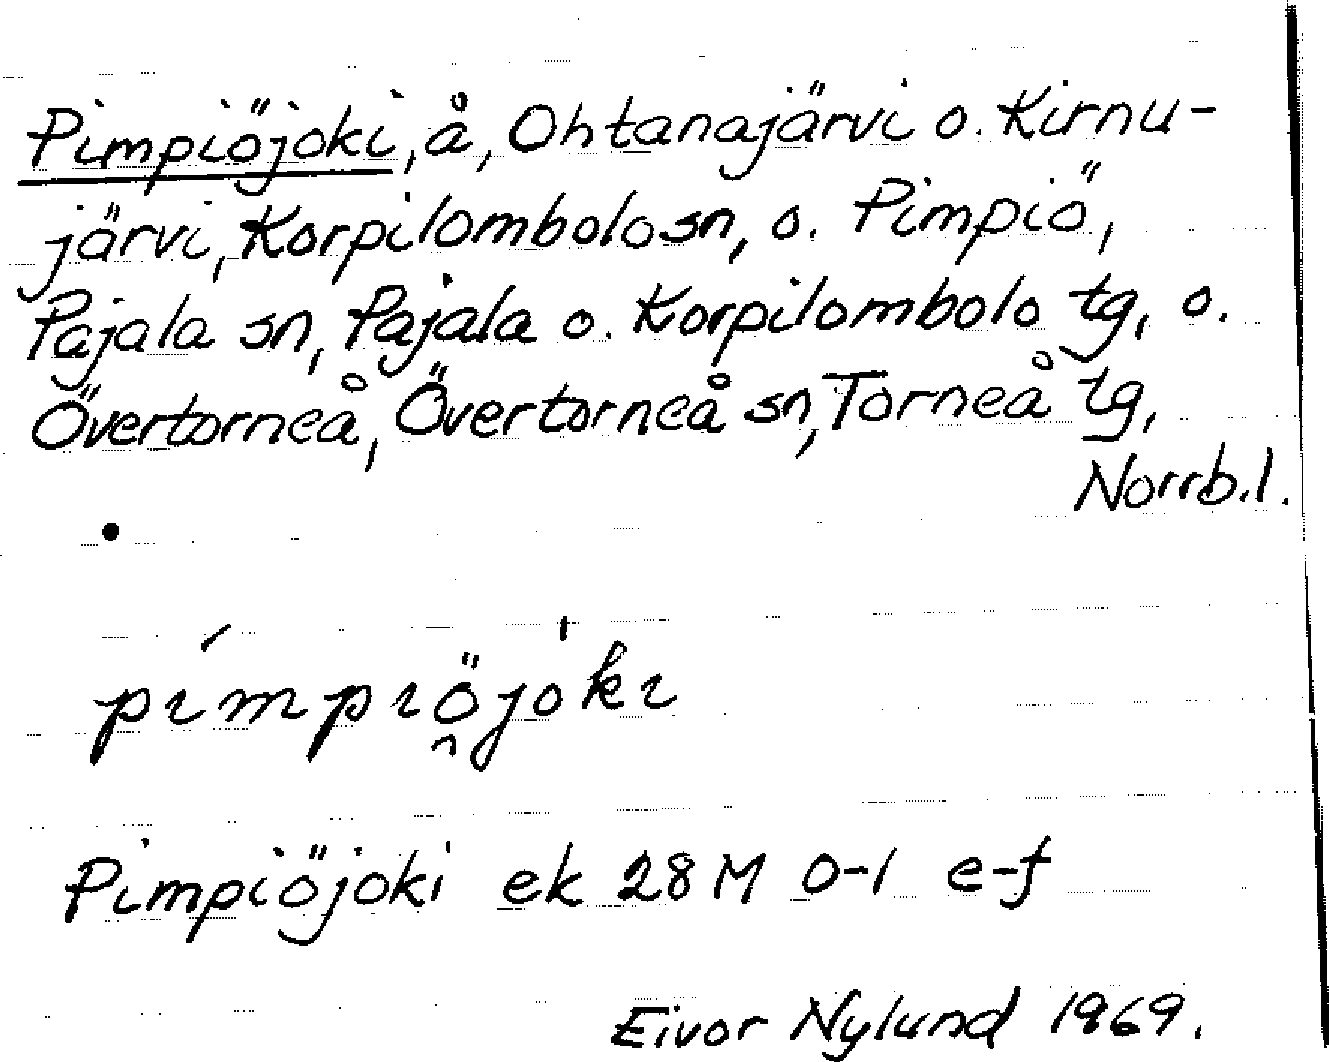 Pimpiöjoki, å, Ohtanajärvi o. Kirnu-
järvi, Korpilombolo sn, o. Pimpiö,
Pajala sn, Pajala o. Korpilombolo tg, o.
Övertorneå, Övertorneå sn, Torneå tg,
Norrb.l.
pímpiö̯jo̍ki
Pimpiöjoki ek 28 M 0-1 e-f
Eivor Nylund 1969.